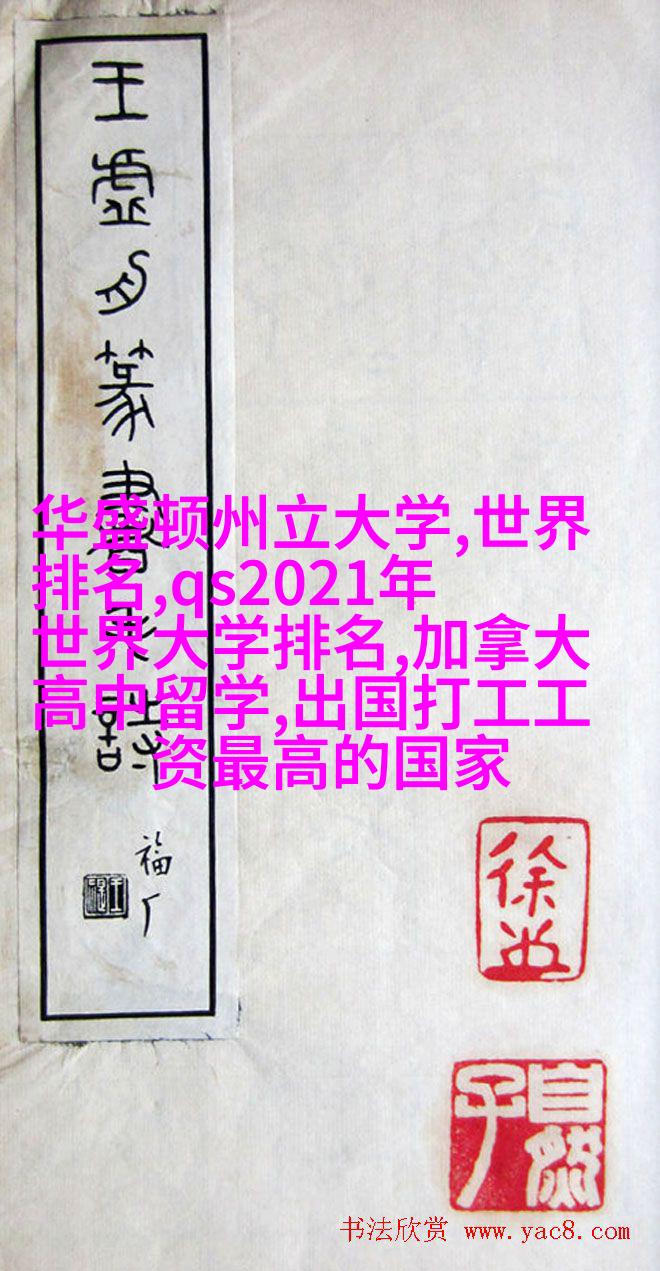 王虛舟篆書
福厂
华盛顿州立大学,世界
排名,qs2021年
世界大学排名,加拿大
高中留学,出国打工工
资最高的国家
徐
自然
子
书法欣赏 www.yac8.com